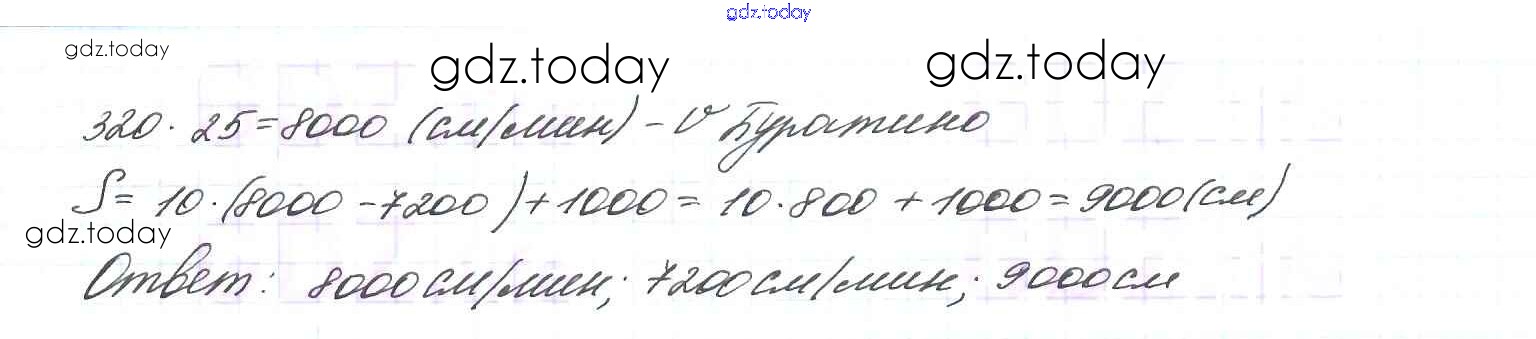 gdz.today
gdz.today
gdz.today gdz.today
320 · 25 = 8000 (см/мин) – v Буратино
S = 10 · (8000 – 7200) + 1000 = 10 · 800 + 1000 = 9000 (см)
gdz.today
Ответ: 8000 см/мин; 7200 см/мин; 9000 см